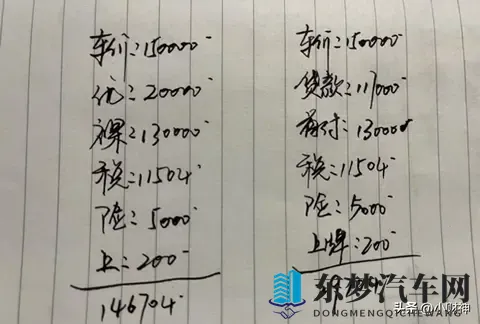 车价:150000
优:20000
裸:130000
税:11504
险:5000
上:200
146704
车价:150000
贷款:117000
首付:13000
税:11504
险:5000
上牌:200
东梦汽车网
DONGMENGQICHEWANG
头条